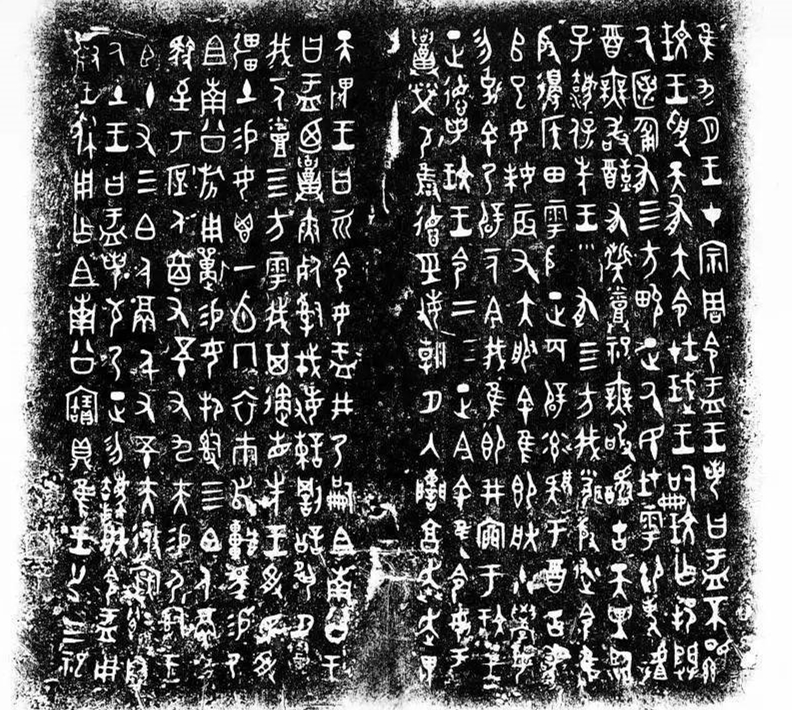 隹九月王才宗周令盂王若曰盂不顯
玟王受天有大令在珷王嗣玟乍邦闢
氒匿匍有四方畯正氒民在雩御事䖒
酉無敢酖有髭烝祀無敢醻古天異臨
子灋保先王有四方我聞殷述令隹
殷邊侯田雩殷正百辟率肄于酉古喪
𠂤巳女妹辰又大服余隹即朕小學女
勿剋余乃辟一人今我隹即井㐭于玟王
正德若玟王令二三正今余隹令女盂
召榮敬雍德巠敏朝夕入讕享奔走畏
天畏王曰而令女盂井乃嗣且南公王
曰盂廼召夾死司戎敏諫罰訟夙夕召
我一人烝四方雩我其遹省先王受民受
彊土易女鬯一卣冂衣巿舄車馬易乃
且南公旂用狩易女邦司四白人鬲自
馭至于庶人六百又五十又九夫易尸司王
臣十又三白人鬲千又五十夫遷自
氒土王曰盂若敬乃正勿灋朕令盂用
對王休用乍且南公寶鼎隹王廿又三祀